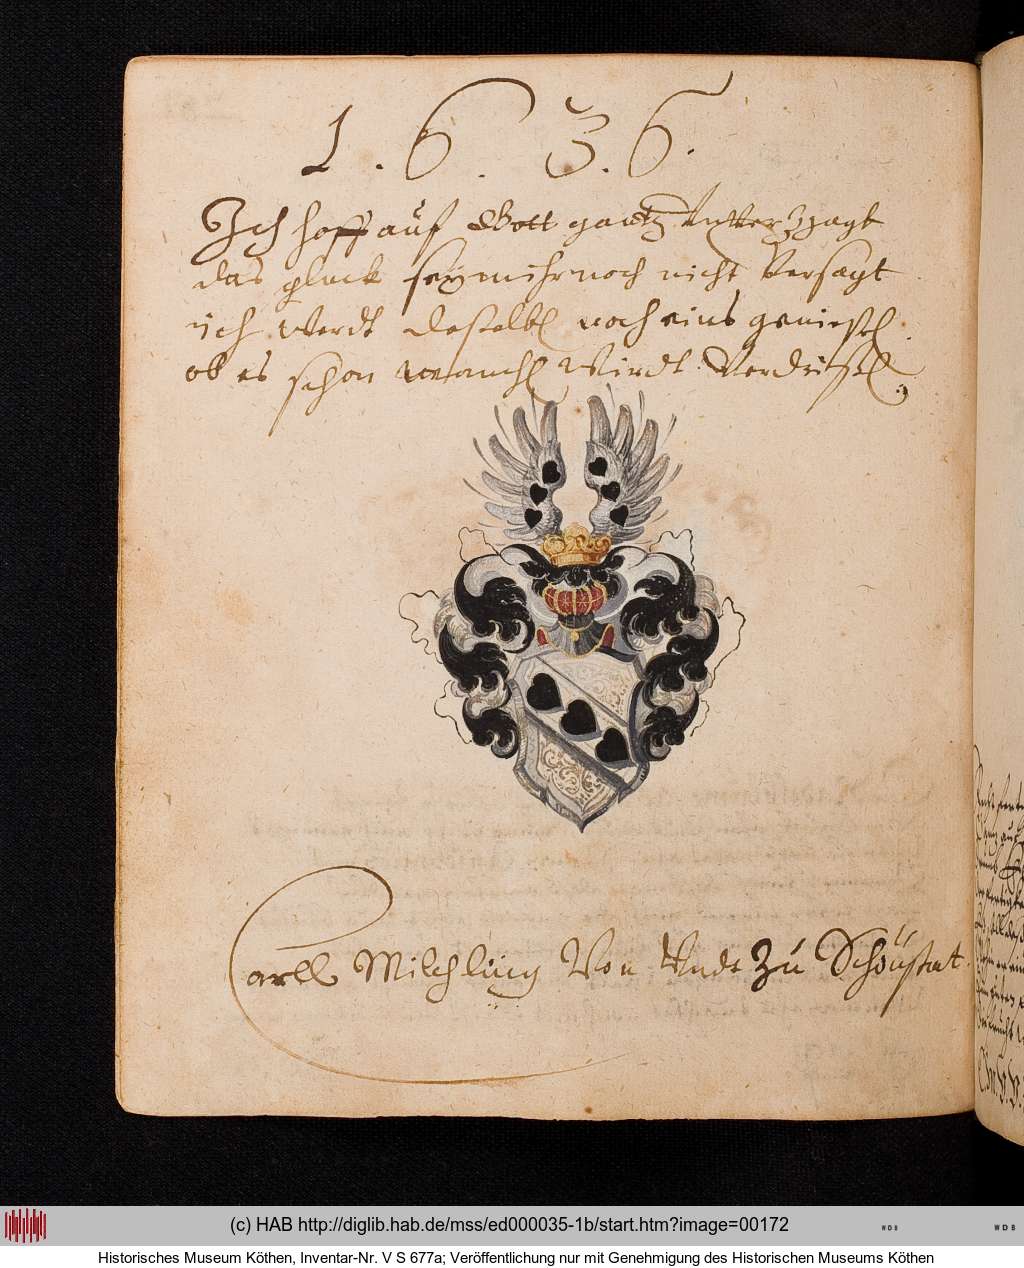 1. 6. 3. 6.
Ich hoff auf Gott gantz Vnverzagt
das gluck sey mihr noch nicht Versagt
ich Werdt deselben noch eins geniesen
ob es schon manchen Wirdt Verdrisen
Carll Milchling Von Vndt zu Schönstat
(c) HAB http://diglib.hab.de/mss/ed000035-1b/start.htm?image=00172
WDB
WDB
Historisches Museum Köthen, Inventar-Nr. V S 677a; Veröffentlichung nur mit Genehmigung des Historischen Museums Köthen